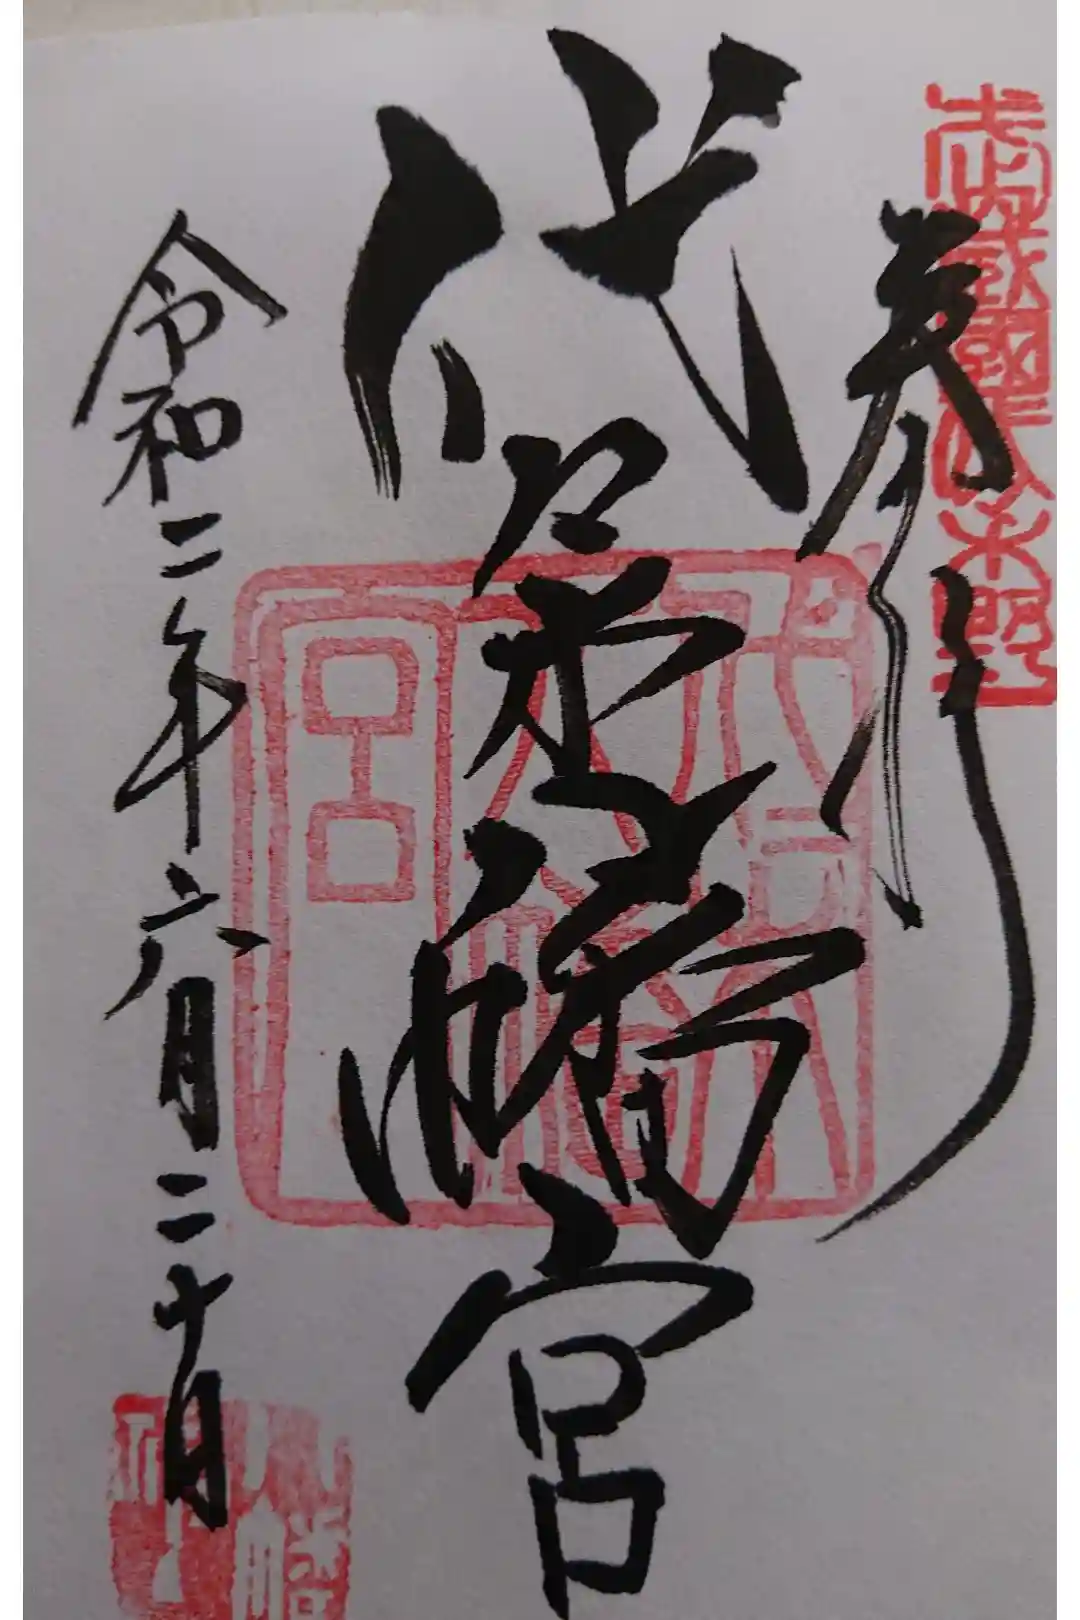 武蔵國代々木野
奉拝
代々木八幡宮
代々木八幡宮
令和二年六月二十日